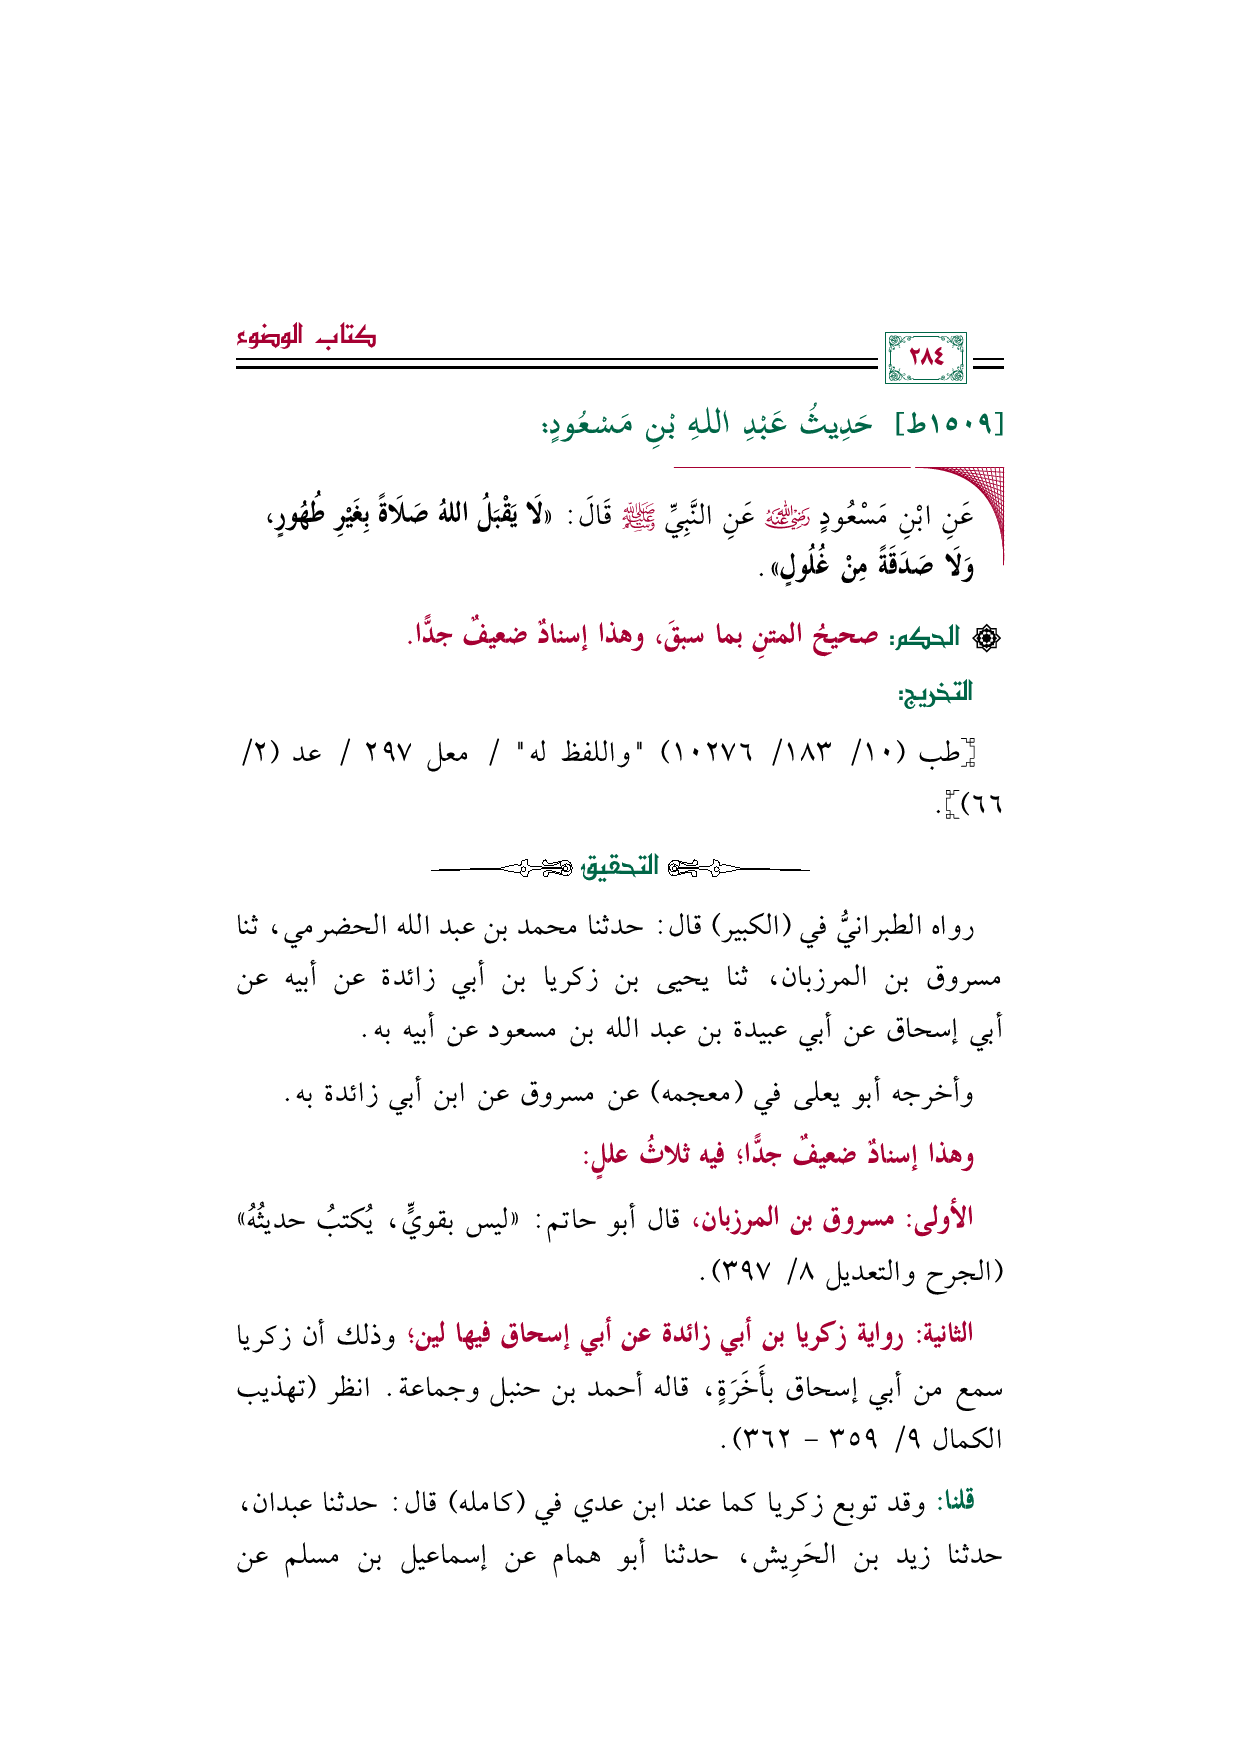 كتاب الوضوء
٢٨٤
[١٥٠٩ط] حَدِيثُ عَبْدِ اللهِ بْنِ مَسْعُودٍ:
عَنِ ابْنِ مَسْعُودٍ رضي الله عنه عَنِ النَّبِيِّ ﷺ قَالَ: «لَا يَقْبَلُ اللهُ صَلَاةً بِغَيْرِ طُهُورٍ،
وَلَا صَدَقَةً مِنْ غُلُولٍ».
الحكم: صحيحُ المتنِ بما سبقَ، وهذا إسنادٌ ضعيفٌ جدًّا.
التخريج:
[طب (١٠/ ١٨٣/ ١٠٢٧٦) "واللفظ له" / معل ٢٩٧ / عد (٢/
٦٦)].
التحقيق
رواه الطبرانيُّ في (الكبير) قال: حدثنا محمد بن عبد الله الحضرمي، ثنا
مسروق بن المرزبان، ثنا يحيى بن زكريا بن أبي زائدة عن أبيه عن
أبي إسحاق عن أبي عبيدة بن عبد الله بن مسعود عن أبيه به.
وأخرجه أبو يعلى في (معجمه) عن مسروق عن ابن أبي زائدة به.
وهذا إسنادٌ ضعيفٌ جدًّا؛ فيه ثلاثُ عللٍ:
الأولى: مسروق بن المرزبان، قال أبو حاتم: «ليس بقويٍّ، يُكتبُ حديثُهُ»
(الجرح والتعديل ٨/ ٣٩٧).
الثانية: رواية زكريا بن أبي زائدة عن أبي إسحاق فيها لين؛ وذلك أن زكريا
سمع من أبي إسحاق بأَخَرَةٍ، قاله أحمد بن حنبل وجماعة. انظر (تهذيب
الكمال ٩/ ٣٥٩ – ٣٦٢).
قلنا: وقد توبع زكريا كما عند ابن عدي في (كامله) قال: حدثنا عبدان،
حدثنا زيد بن الحَرِيش، حدثنا أبو همام عن إسماعيل بن مسلم عن